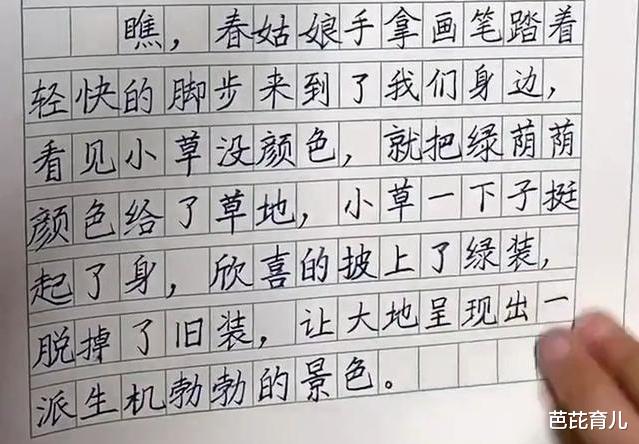 瞧，春姑娘手拿画笔踏着
轻快的脚步来到了我们身边，
看见小草没颜色，就把绿荫荫
颜色给了草地，小草一下子挺
起了身，欣喜的披上了绿装，
脱掉了旧装，让大地呈现出一
派生机勃勃的景色。
芭芘育儿